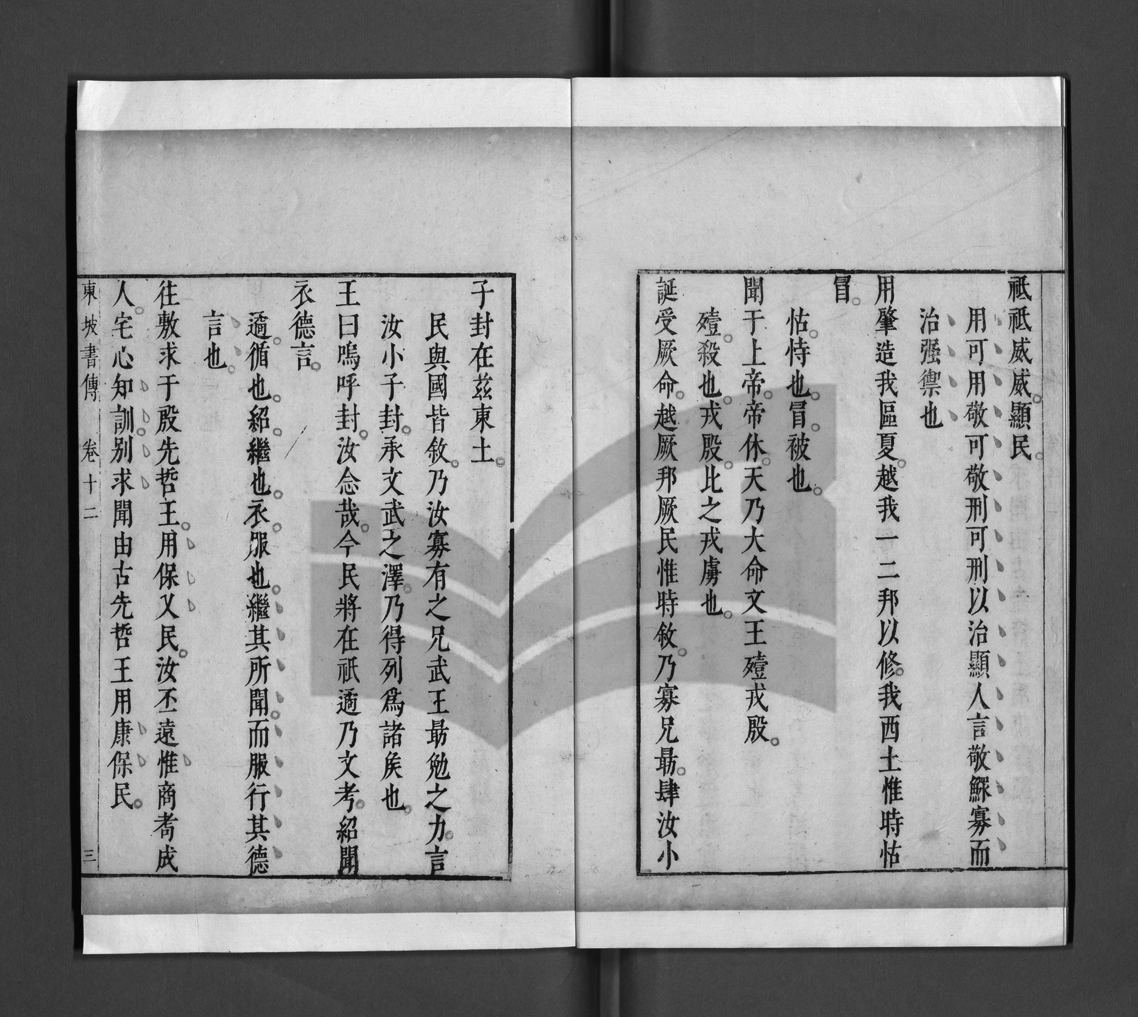 祗祗威威。顯民。
用可用敬可敬刑可刑以治顯人言敬鰥寡而
治强禦也
用肇造我區夏。越我一二邦以修。我西土惟時怙
冒。
怙。恃也。冒。被也。
聞于上帝。帝休。天乃大命文王殪戎殷。
殪。殺也。戎殷。比之戎虜也。
誕受厥命。越厥邦厥民惟時敘。乃寡兄勗。肆汝小
子封在茲東土。
民與國皆敘。乃汝寡有之兄武王勗勉之力。言
汝小子封。承文武之澤。乃得列爲諸矦也。
王曰嗚呼封。汝念哉。今民將在祗遹乃文考。紹聞
衣德言。
遹。循也。紹。繼也。衣。服也。繼其所聞。而服行其德
言也。
往敷求于殷先哲王。用保乂民。汝丕遠惟商耇成
人。宅心知訓。别求聞由古先哲王用康保民。
東坡書傳 卷十二 三